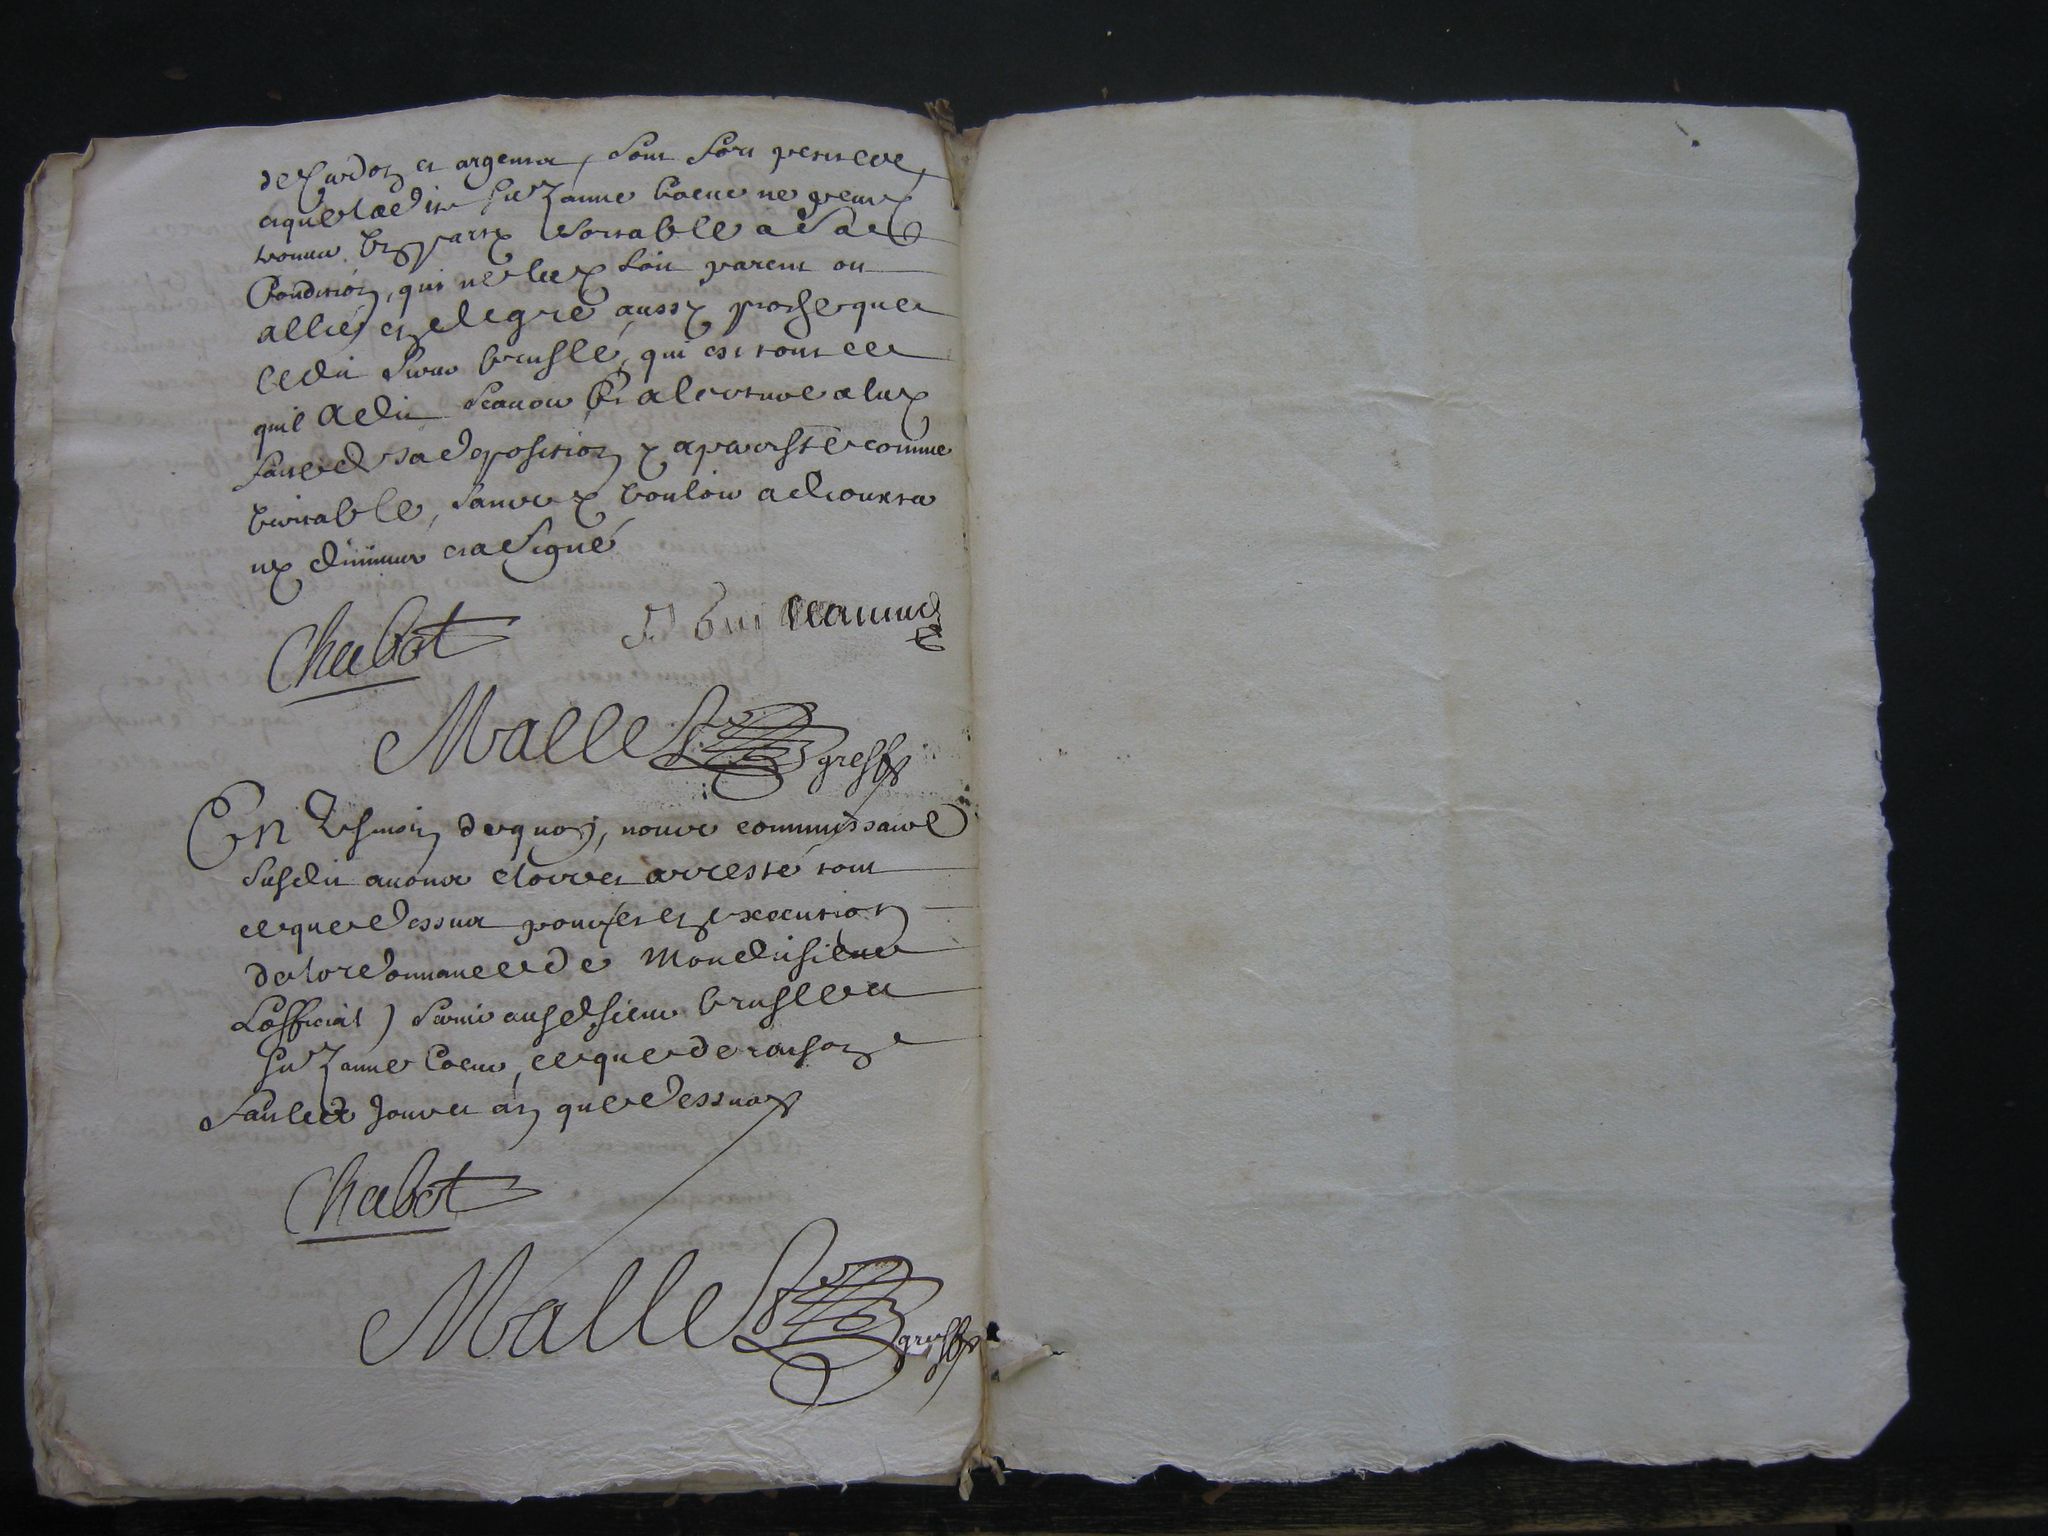 et argenta, sont fort petits et
et que ladite Suzanne Coeur ne peut
trouver un party sortable a sa
Condition, qui ne luy soit parent ou
allié, en degré aussy proche que
ledit sieur bruslé, qui est tout ce
quil a dit scavoir Et a lecture a luy
faite de sa deposition y a persisté comme
veritable, sans y vouloir adiouster
ny diminuer et a signé
Chabot
Mallet greff
En tesmoin de quoy, nous commissaire
susdit avons clos et arresté tout
ce que dessus pour en execution
de lordonnance de Mondit sieur
Lofficial servir ausd sieur bruslé et
Suzanne Coeur, ce que de raison
fait led Jour et an que dessus
Chabot
Mallet greff